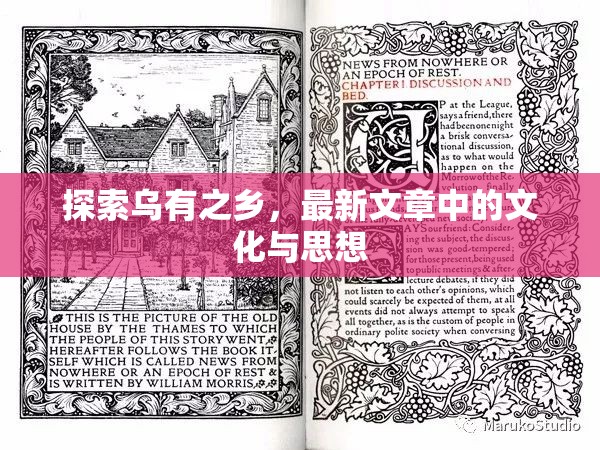 探索乌有之乡，最新文章中的文
化与思想
THIS IS THE PICTURE OF THE OLD
HOUSE BY THE THAMES TO WHICH
THE PEOPLE OF THIS STORY WENT
HEREAFTER FOLLOWS THE BOOK IT-
SELF WHICH IS CALLED NEWS FROM
NOWHERE OR AN EPOCH OF REST &
IS WRITTEN BY WILLIAM MORRIS
NEWS FROM NOWHERE OR
AN EPOCH OF REST.
CHAPTER I. DISCUSSION AND
BED.
UP at the League,
says a friend, there
had been one night
a brisk conversa-
tional discussion,
as to what would
happen on the
Morrow of the Re-
SAYS our friend: Consider-
ing the subject, the discus-
sion was good-tempered;
for those present, being used
to public meetings & after-
lecture debates, if they did
not listen to each other's opinions, which
could scarcely be expected of them, at all
events did not always attempt to speak
all together, as is the custom of people in
ordinary polite society when conversing
MarukoStudio